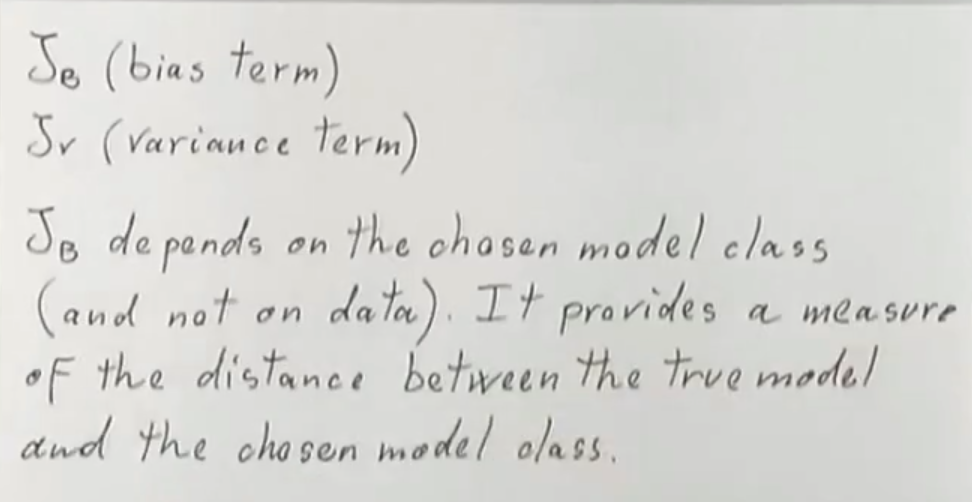 J_B (bias term)
J_V (variance term)
J_B depends on the chosen model class
(and not on data). It provides a measure
of the distance between the true model
and the chosen model class.